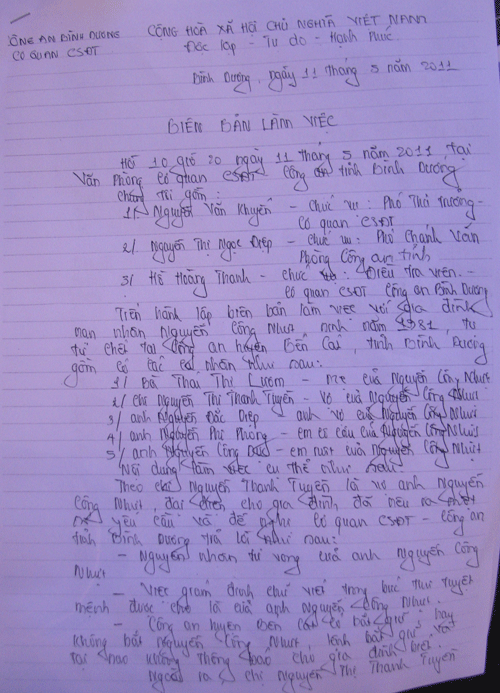 CÔNG AN BÌNH DƯƠNG
CƠ QUAN CSĐT
CỘNG HÒA XÃ HỘI CHỦ NGHĨA VIỆT NAM
Độc lập - Tự do - Hạnh Phúc
Bình Dương, ngày 11 tháng 5 năm 2011
BIÊN BẢN LÀM VIỆC
Hồi 10 giờ 20 ngày 11 tháng 5 năm 2011 tại
Văn Phòng Cơ quan CSĐT Công an tỉnh Bình Dương
chúng tôi gồm:
1/ Nguyễn Văn Khuyên - Chức vụ: Phó Thủ Trưởng -
Cơ quan CSĐT
2/ Nguyễn Thị Ngọc Điệp - chức vụ: Phó Chánh Văn
Phòng Công an tỉnh
3/ Hồ Hoàng Thanh - chức vụ: Điều Tra Viên -
Cơ quan CSĐT Công an Bình Dương
Tiến hành lập biên bản làm việc với gia đình
nạn nhân Nguyễn Công Nhựt sinh năm 1981, tự
tử chết tại Công an huyện Bến Cát, tỉnh Bình Dương
gồm có các cá nhân như sau:
1/ Bà Thái Thị Lượm - Mẹ của Nguyễn Công Nhựt
2/ Chị Nguyễn Thị Thanh Tuyền - Vợ của Nguyễn Công Nhựt
3/ anh Nguyễn Đắc Điệp anh vợ của Nguyễn Công Nhựt
4/ anh Nguyễn Phi Phòng - em cô cậu của Nguyễn Công Nhựt
5/ anh Nguyễn Công - em ruột của Nguyễn Công Nhựt
Nội dung làm việc cụ thể như sau:
Theo chị Nguyễn Thanh Tuyền là vợ anh Nguyễn
Công Nhựt, đại diện cho gia đình đã nêu ra một
số yêu cầu và đề nghị Cơ quan CSĐT - Công an
tỉnh Bình Dương trả lời như sau:
- Nguyên nhân tử vong của anh Nguyễn Công
Nhựt
- Việc giám định chữ viết trong bức thư tuyệt
mệnh được cho là của anh Nguyễn Công Nhựt.
- Công an huyện Bến Cát có bắt giữ hay
không bắt Nguyễn Công Nhựt, lệnh bắt giữ và
tại sao không thông báo cho gia đình biết.
Ngoài ra chị Nguyễn Thị Thanh Tuyền